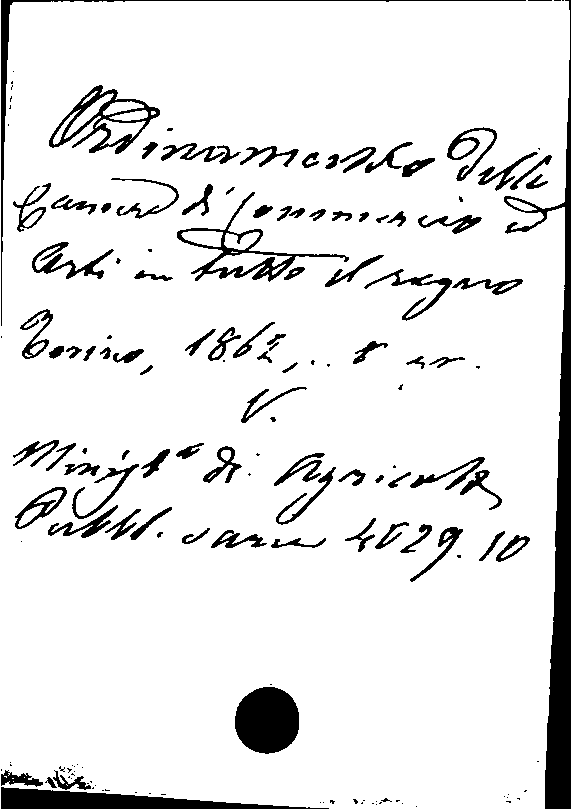 Ordinamento delle
Camere di Commercio ed
Arti in tutto il regno
Torino, 1862, .. 8 gr.
V.
Minist.o di Agricolt.
Pubbl. varie 4029.10